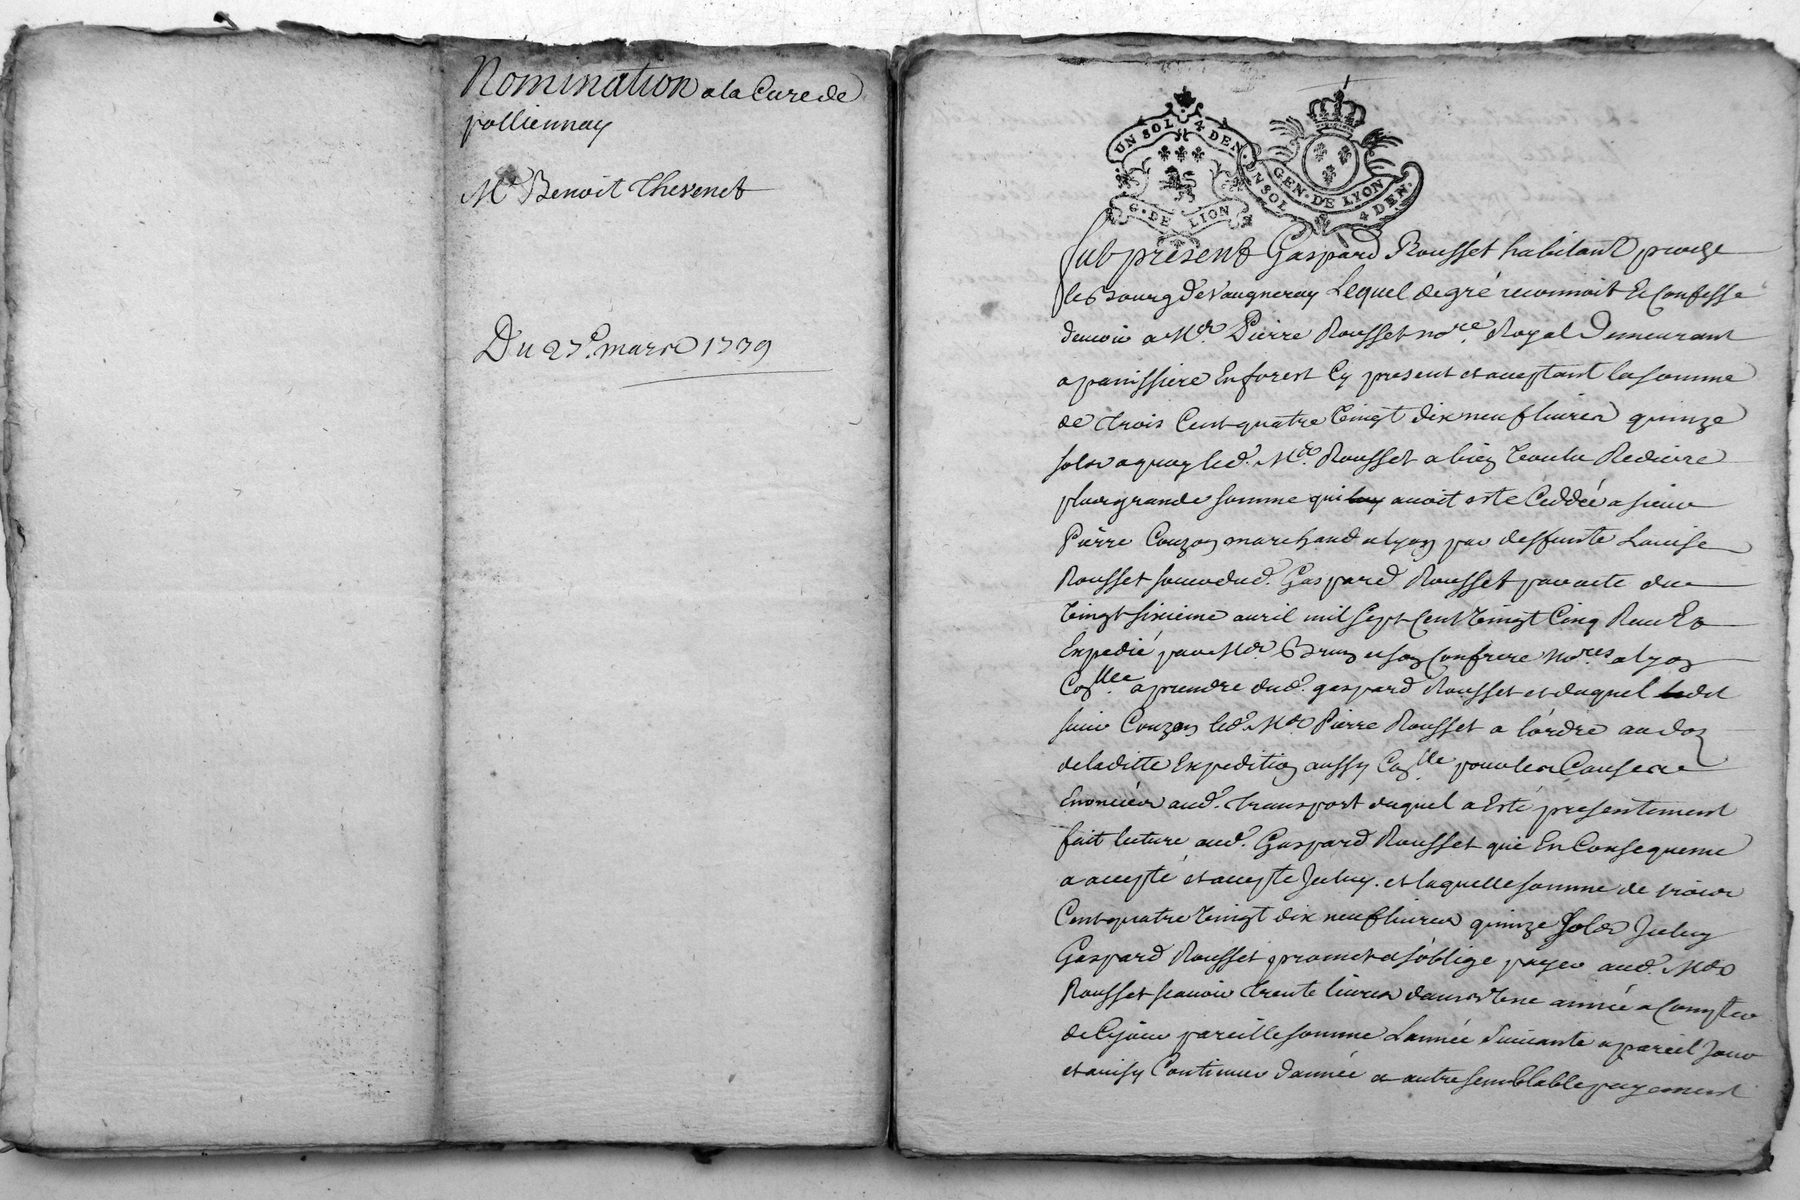 Nomination a la Cure de
polliennay
Mre Benoit Thevenet
Du 27e. mars 1739
UN SOL 4 DEN.
G. DE LION
UN SOL 4 DEN.
GEN. DE LYON
fut present Gaspard Rousset habitant proche
le Bourg de Vaugneray Lequel de gré reconnoit Et Confesse
devoir a Me. Pierre Rousset nore. Royal Demeurant
a panissiere En forest Cy present et acceptant la somme
de trois Cent quatre Vingt dix neuf livres quinze
sols a quoy led. Me. Rousset a bien Voulu Reduire
plus grande somme qui luy avoit esté Ceddée a sieur
Pierre Couzon marchand a lyon par deffunte Louise
Rousset soeur dud. Gaspard Rousset par acte du
Vingt sixieme avril mil sept Cent Vingt Cinq Receu Et
Expedié par Me. Brun et son Confrere nores a lyon
Conlle. a prendre dud. gaspard Rousset et duquel ledit
sieur Couzon led. Me. Pierre Rousset a l'ordre au dos
de laditte Expedition aussy Conlle pour les Causes
Enoncées aud. transport duquel a Esté presentement
fait lecture aud. Gaspard Rousset qui En Consequence
a accepté et accepte Iceluy. et laquelle somme de trois
Cent quatre Vingt dix neuf livres quinze sols Iceluy
Gaspard Rousset promet et s'oblige payer aud. Me
Rousset scavoir trente livres dans Une année a Compter
de Ce jour pareille somme L'année suivante a pareil jour
et ainsy Continuer d'année a autre semblable payement